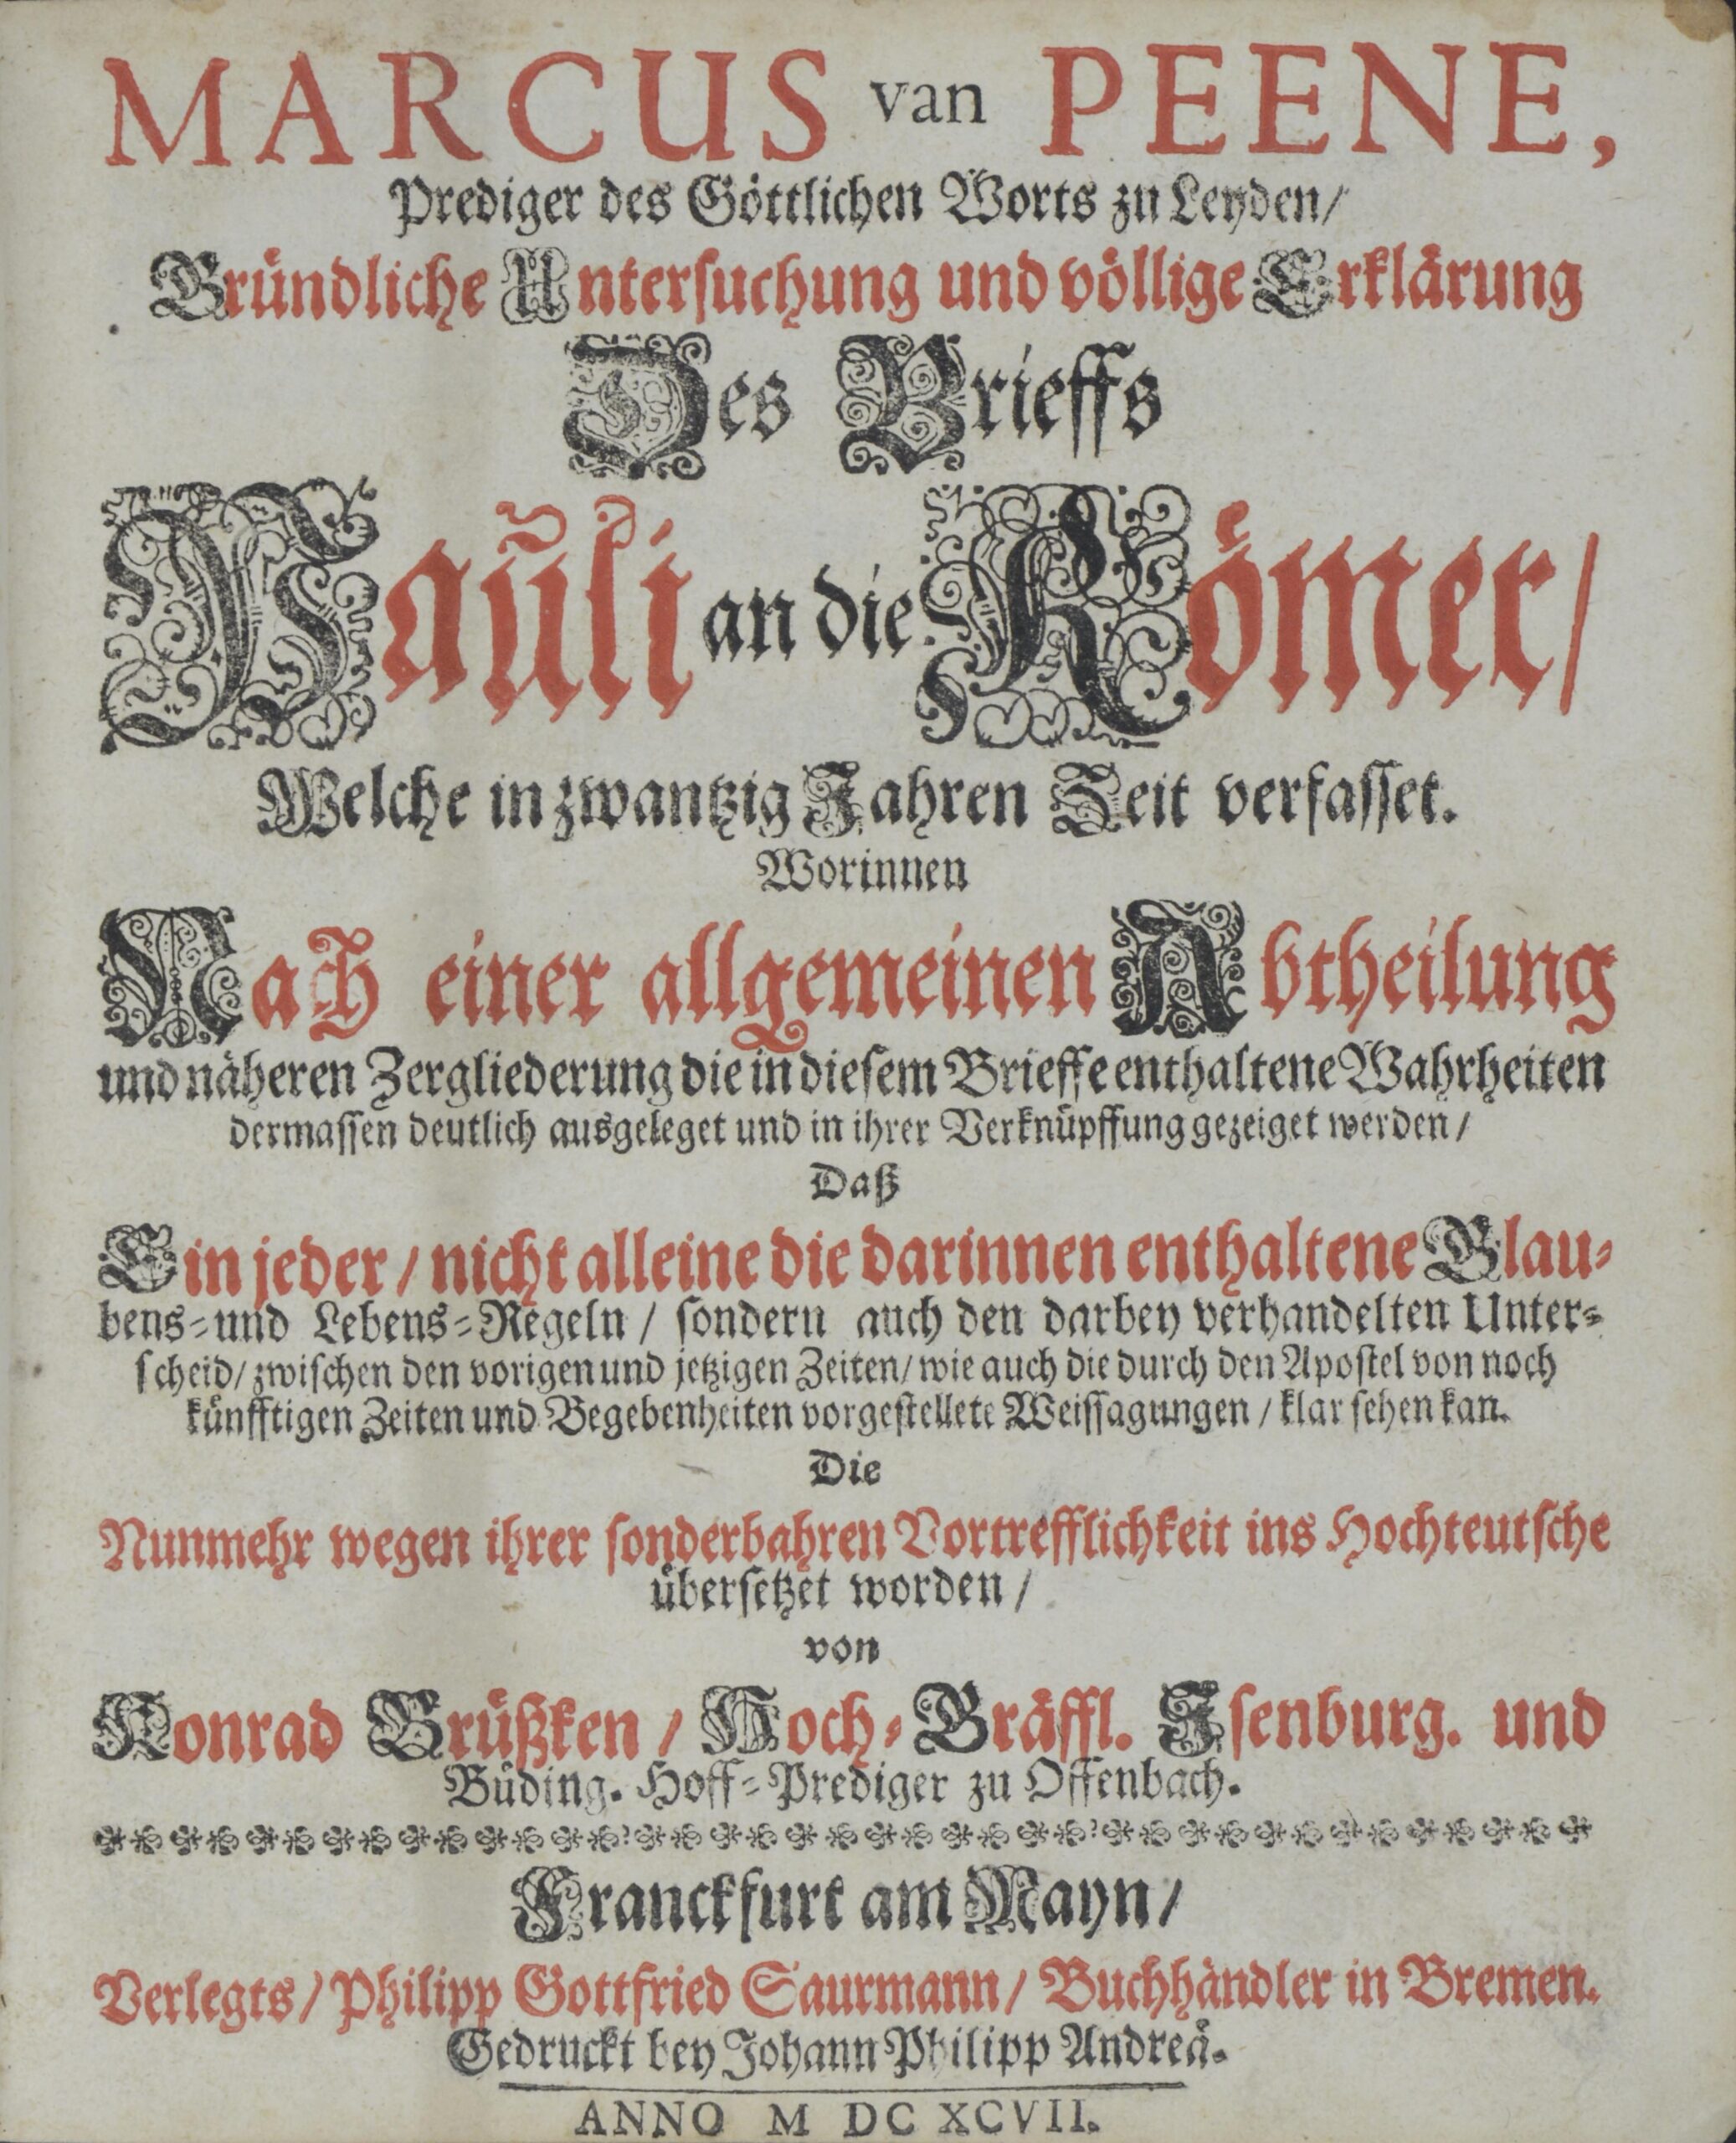 MARCUS van PEENE,
Prediger des Göttlichen Worts zu Leyden/
Gründliche Untersuchung und völlige Erklärung
Des Brieffs
Pauli an die Römer/
Welche in zwantzig Jahren Zeit verfasset.
Worinnen
Nach einer allgemeinen Abtheilung
und näheren Zergliederung die in diesem Brieffe enthaltene Wahrheiten
dermassen deutlich ausgeleget und in ihrer Verknüpffung gezeiget werden/
Daß
Ein jeder/ nicht alleine die darinnen enthaltene Glau-
bens- und Lebens-Regeln/ sondern auch den darbey verhandelten Unter-
scheid/ zwischen den vorigen und jetzigen Zeiten/ wie auch die durch den Apostel von noch
künfftigen Zeiten und Begebenheiten vorgestellete Weissagungen/ klar sehen kan.
Die
Nunmehr wegen ihrer sonderbahren Vortrefflichkeit ins Hochteutsche
übersetzet worden/
von
Konrad Brüßken/ Hoch-Gräffl. Isenburg. und
Büding. Hoff-Prediger zu Offenbach.
Franckfurt am Mayn/
Verlegts/ Philipp Gottfried Saurmann/ Buchhändler in Bremen.
Gedruckt bey Johann Philipp Andreä.
ANNO M DC XCVII.